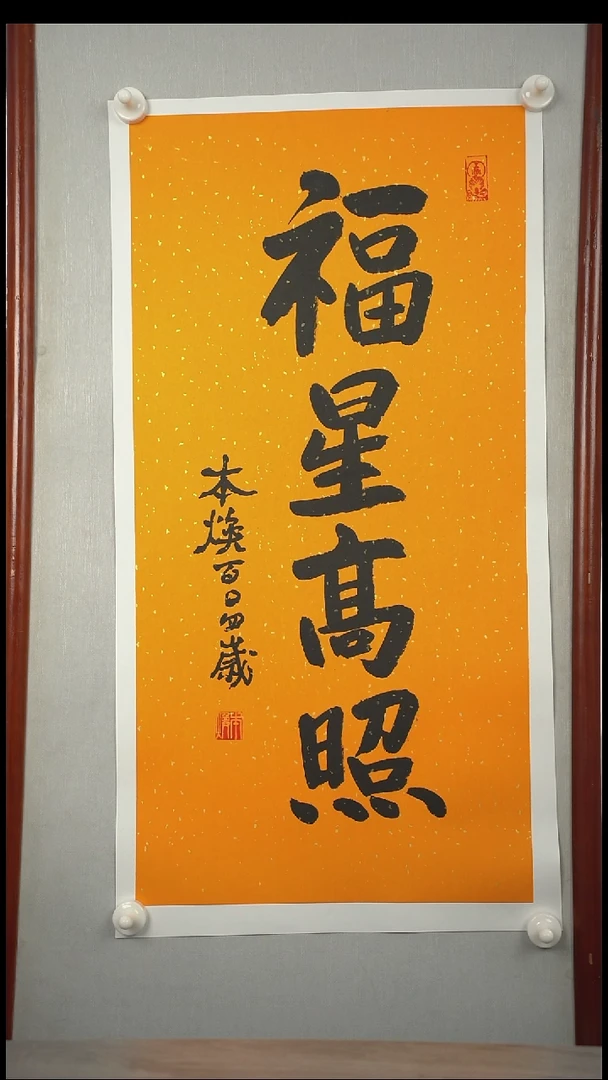 福星高照
本焕百〇四歲